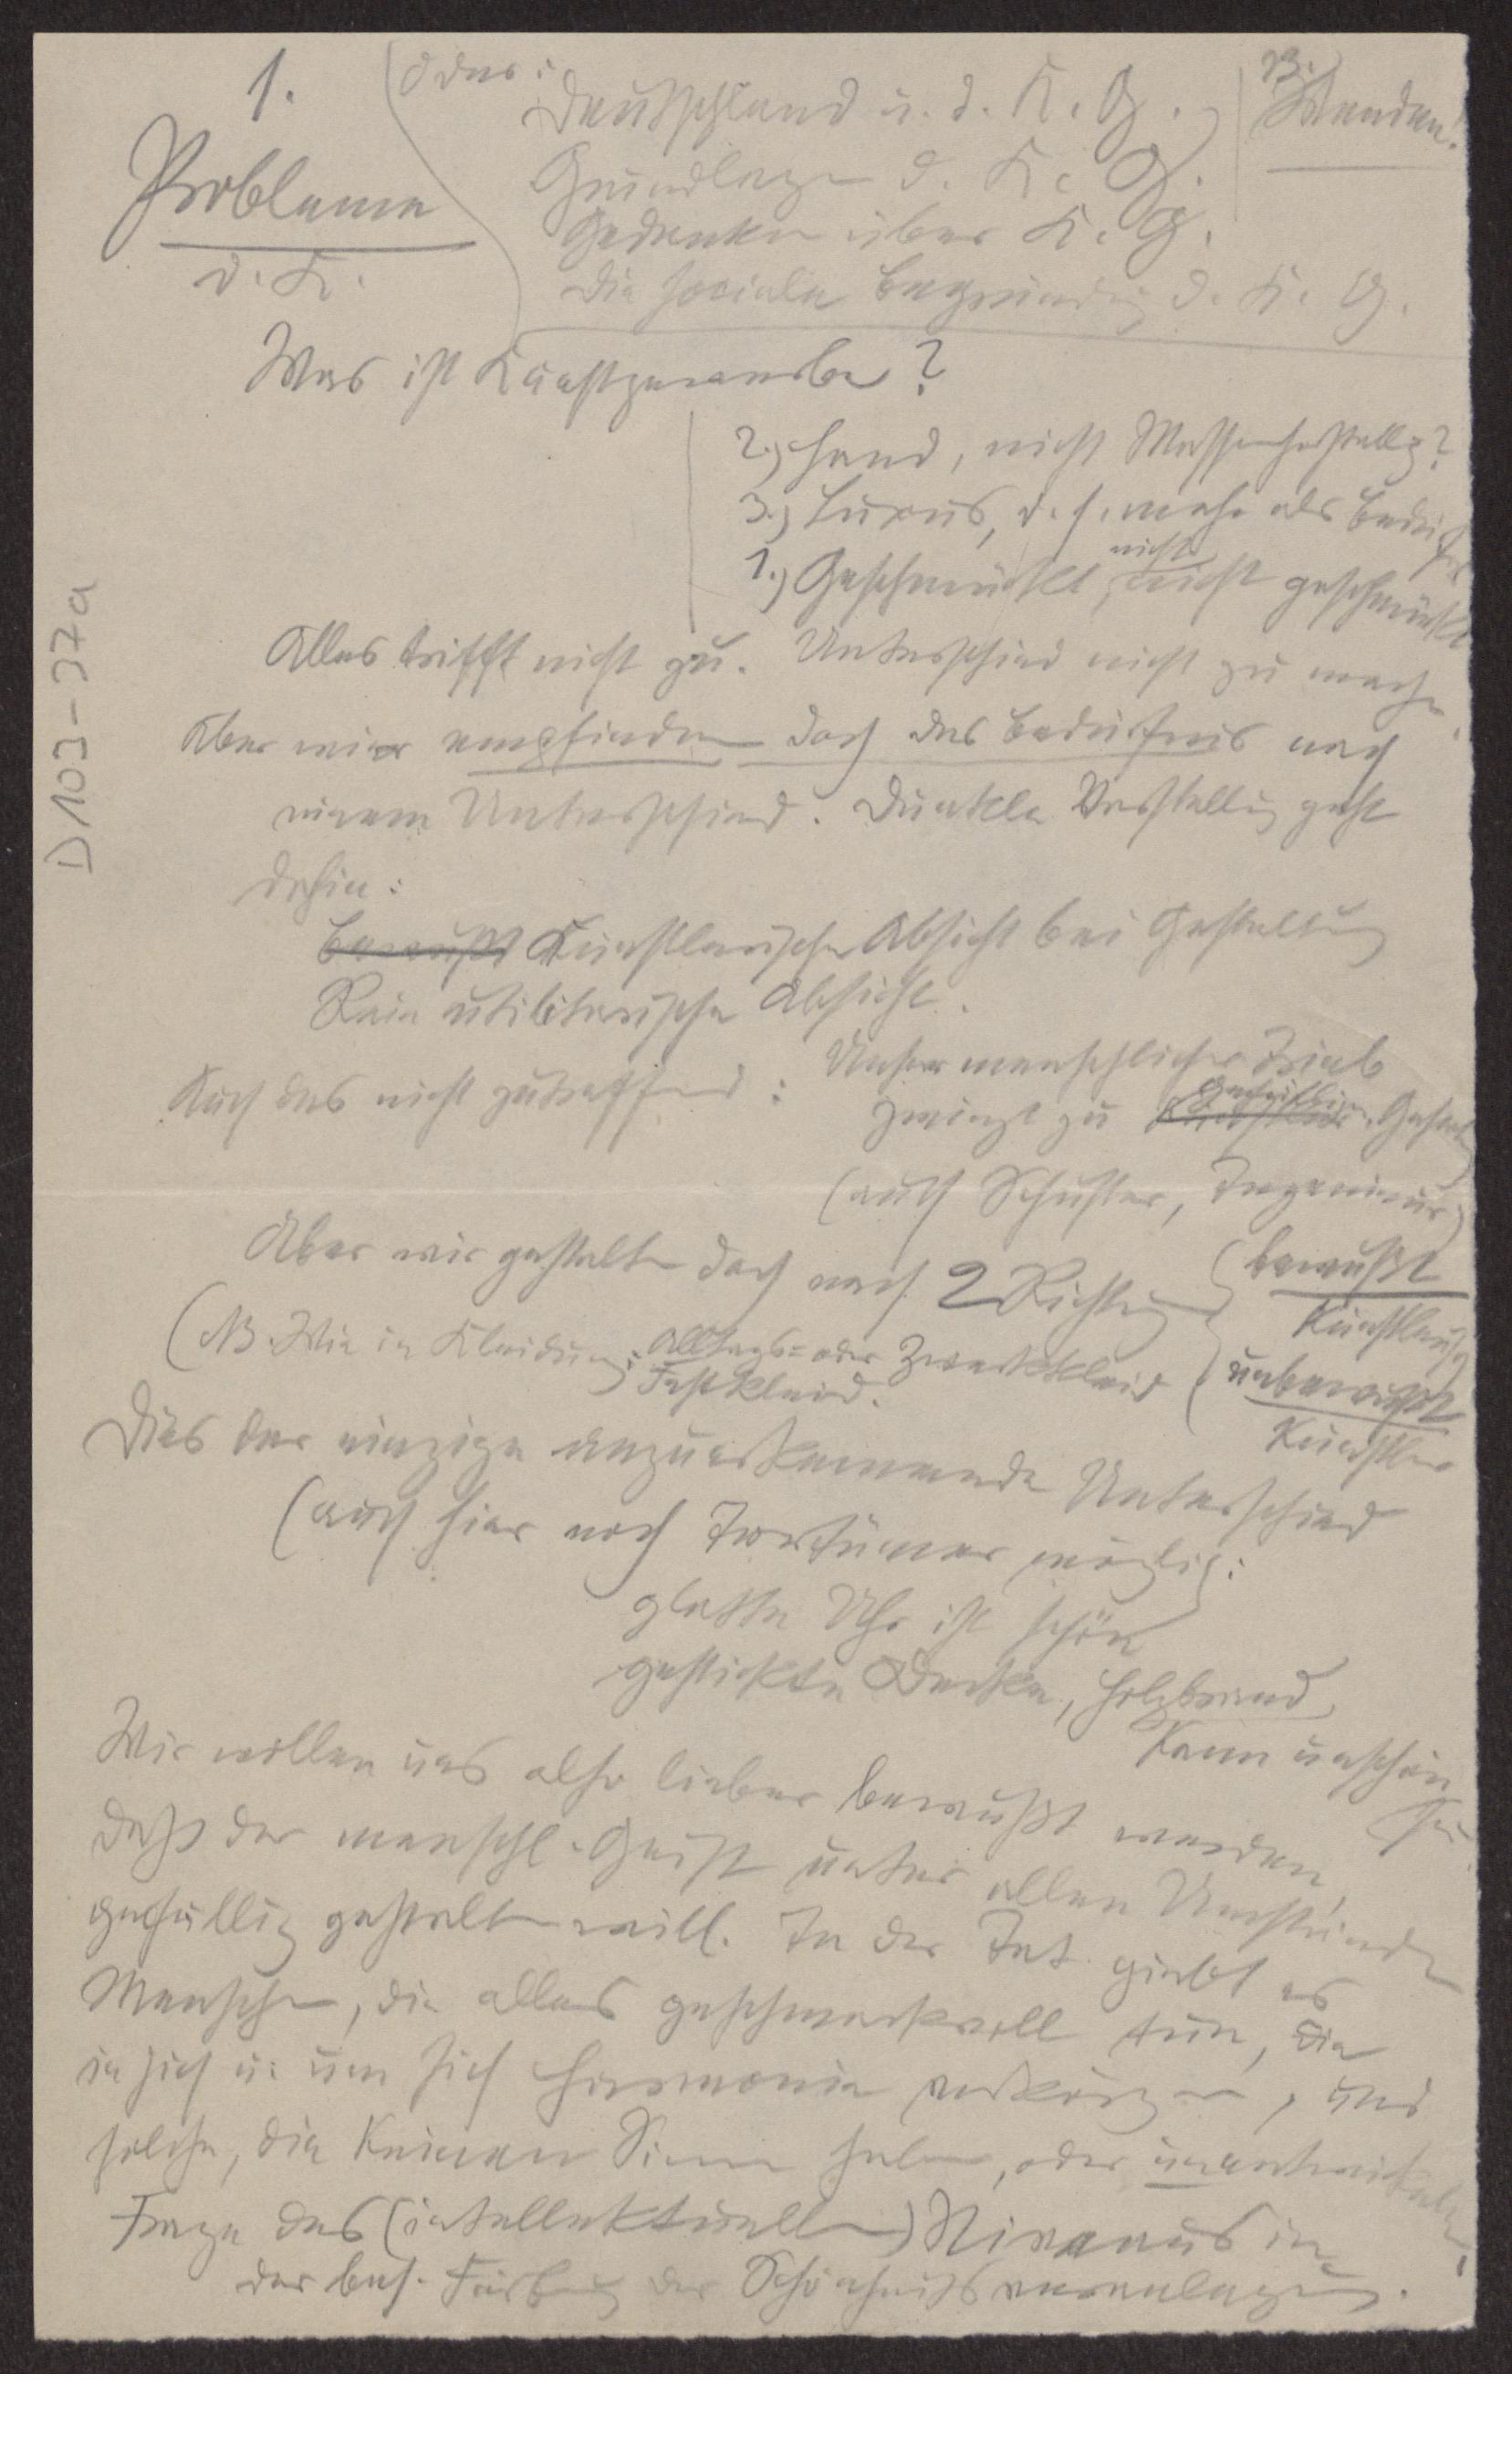 1.
Probleme
d. K.
oder:
Deutschland u. d. K. G.
Grundlagen d. K. G.
Gedanken über K. G.
Die sociale Begründung d. K. G.
B.
Wenden!
Was ist Kunstgewerbe?
2.) Hand, nicht Massenherstellg?
3.) Luxus, d. h. mehr als Bedürfnis
1.) Geschmückt, nicht geschmückt
nicht
Alles trifft nicht zu. Unterschied nicht zu machen.
Aber wir empfinden doch das Bedürfnis nach
einem Unterschied. Dunkle Vorstellung geht
dahin:
Bewußt Künstlerische Absicht bei Gestaltung
Rein utilitarische Absicht.
Auch das nicht zutreffend: Unser menschlicher Trieb
zwingt zu Gestalt
(auch Schuster, Ingenieur)
Aber wir gestalten doch nach 2 Richtungen
bewußt
künstlerisch
unbewußt
künstler
(NB. Wie in Kleidung: Alltags= oder Zweckkleid
Festkleid.
Dies der einzige anzuerkennende Unterschied
(auch hier noch Irrtümer möglich:
glatte Uhr ist schön
gestickte Decke, Holzbrand,
kann unschön
sein.
Wir wollen uns also lieber bewußt werden,
daß der menschl. Geist unter allen Umständen
gefällig gestalten will. In der Tat giebt es
Menschen, die alles geschmackvoll tun, die
in sich u. um sich Harmonie verkörpern, und
solche, die keinen Sinn haben, oder unentwickelten.
Frage des (intellektuellen) Niveaus in
der bes. Färbung der Schönheitsveranlagung.
D103-37a